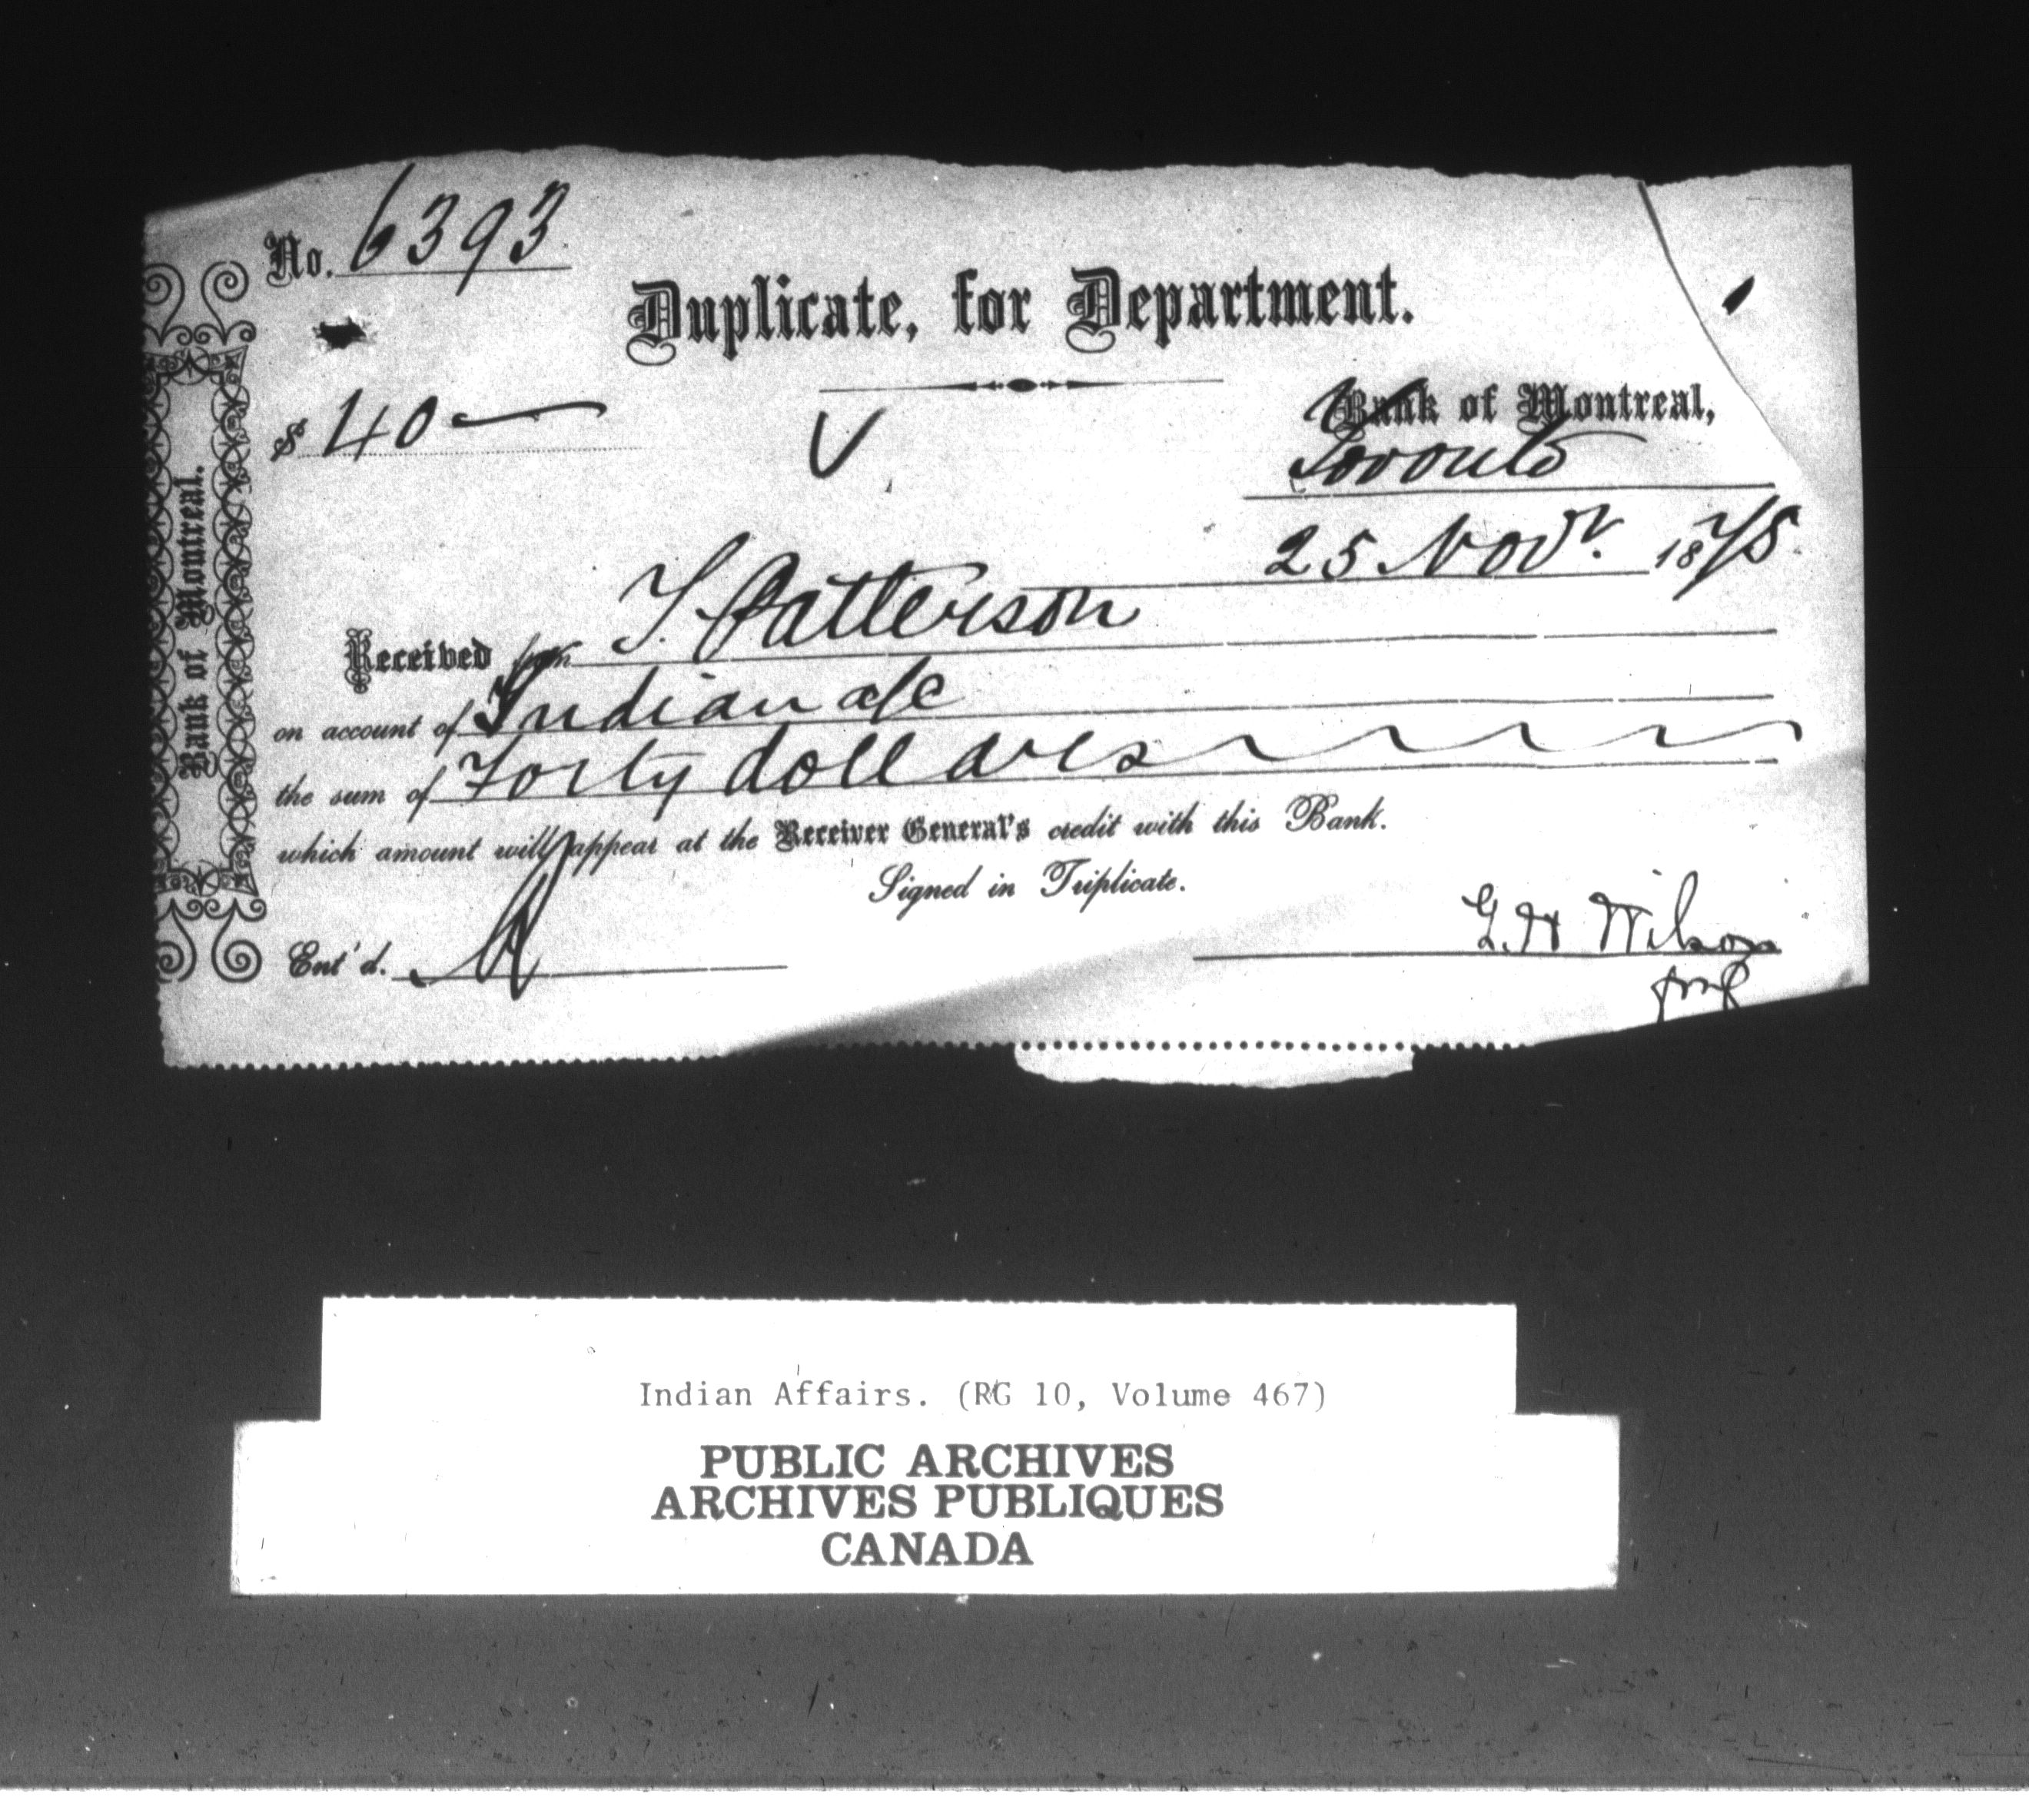 No. 6393
Duplicate, for Department.
$ 40 —
V
Bank of Montreal,
Toronto
25 Novr. 1875
Received from T. Patterson
on account of Indian a/c
the sum of Forty dollars
which amount will appear at the Receiver General's credit with this Bank.
Signed in Triplicate.
Ent'd.
G. H Wilson
Bank of Montreal.
Indian Affairs. (RG 10, Volume 467)
PUBLIC ARCHIVES
ARCHIVES PUBLIQUES
CANADA